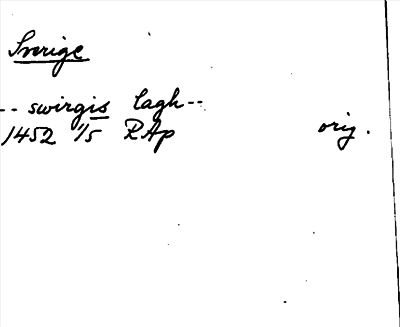 Sverige
-- swirgis lagh --
1452 1/5 RAp orig.